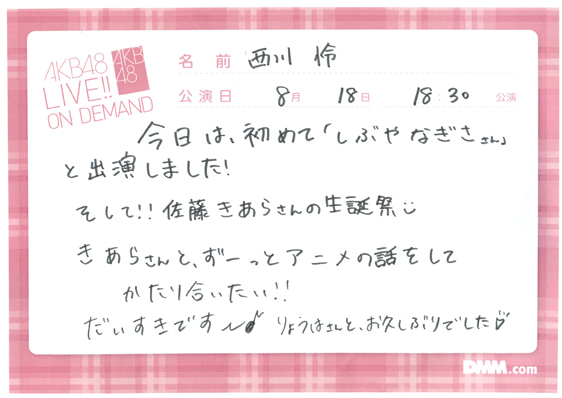 AKB48
LIVE!!
ON DEMAND
AKB
48
名前 西川 怜
公演日 8月 18日 18:30 公演
今日は、初めて「しぶやなぎささん」
と出演しました!
そして!! 佐藤きあらさんの生誕祭
きあらさんと、ずーっとアニメの話をして
かたり合いたい!!
だいすきです〜♪ りょうはさんと、お久しぶりでした♡
DMM.com